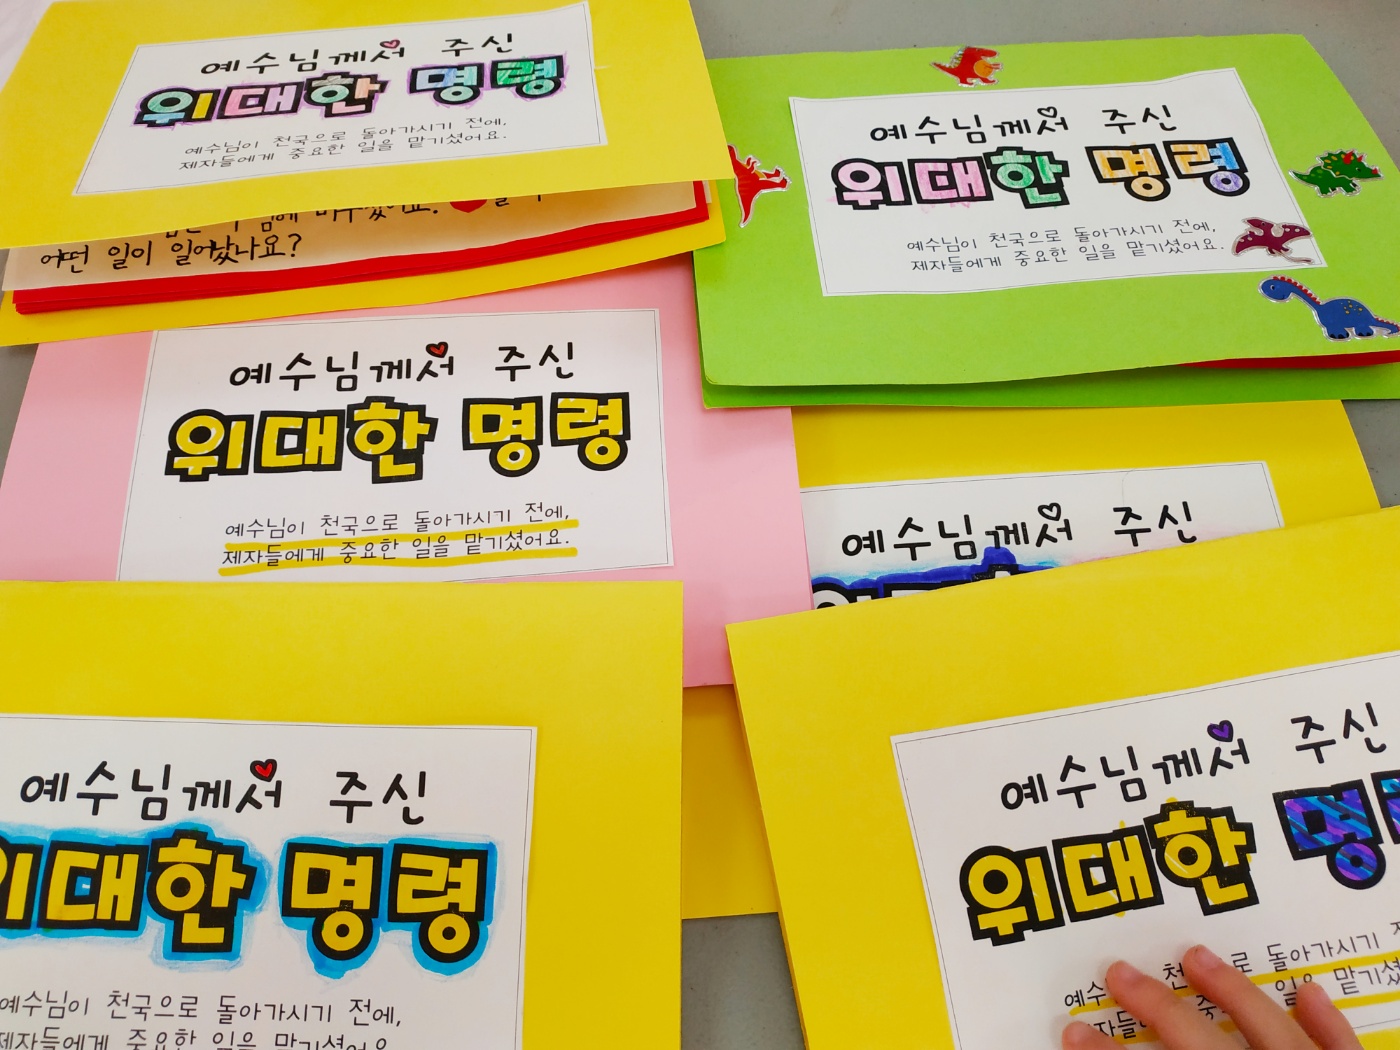 예수님께서 주신
위대한 명령
예수님이 천국으로 돌아가시기 전에,
제자들에게 중요한 일을 맡기셨어요.
어떤 일이 일어났나요?
예수님께서 주신
위대한 명령
예수님이 천국으로 돌아가시기 전에,
제자들에게 중요한 일을 맡기셨어요.
예수님께서 주신
위대한 명령
예수님이 천국으로 돌아가시기 전에,
제자들에게 중요한 일을 맡기셨어요.
예수님께서 주신
예수님께서 주신
위대한 명령
예수님이 천국으로 돌아가시기 전에,
제자들에게 중요한 일을 맡기셨어요
예수님께서 주신
위대한 명
돌아가시기
일을 맡기셨